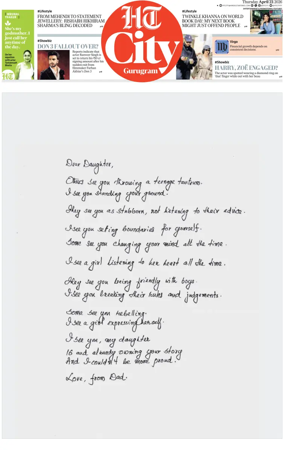 Thursday, April 23, 2026
#Lifestyle
FROM MEHENDI TO STATEMENT
#Lifestyle
TWINKLE KHANNA ON WORLD
BOOK DAY: MY NEXT BOOK
MIGHT JUST OFFEND PEOPLE
HT
City
Gurugram
DON'T FALL OUT OVER!
HARRY, ZOË ENGAGED?
Dear Daughter,
Others see you throwing a teenage tantrum.
I see you standing your ground.
They see you as stubborn, not listening to their advice.
I see you setting boundaries for yourself.
Some see you changing your mind all the time.
I see a girl listening to her heart all the time.
They see you being friendly with boys.
I see you breaking their biases and judgements.
Some see you rebelling.
I see a girl expressing herself.
I see you, my daughter
16 and already owning your story
And I couldn't be more proud.
Love, from Dad.